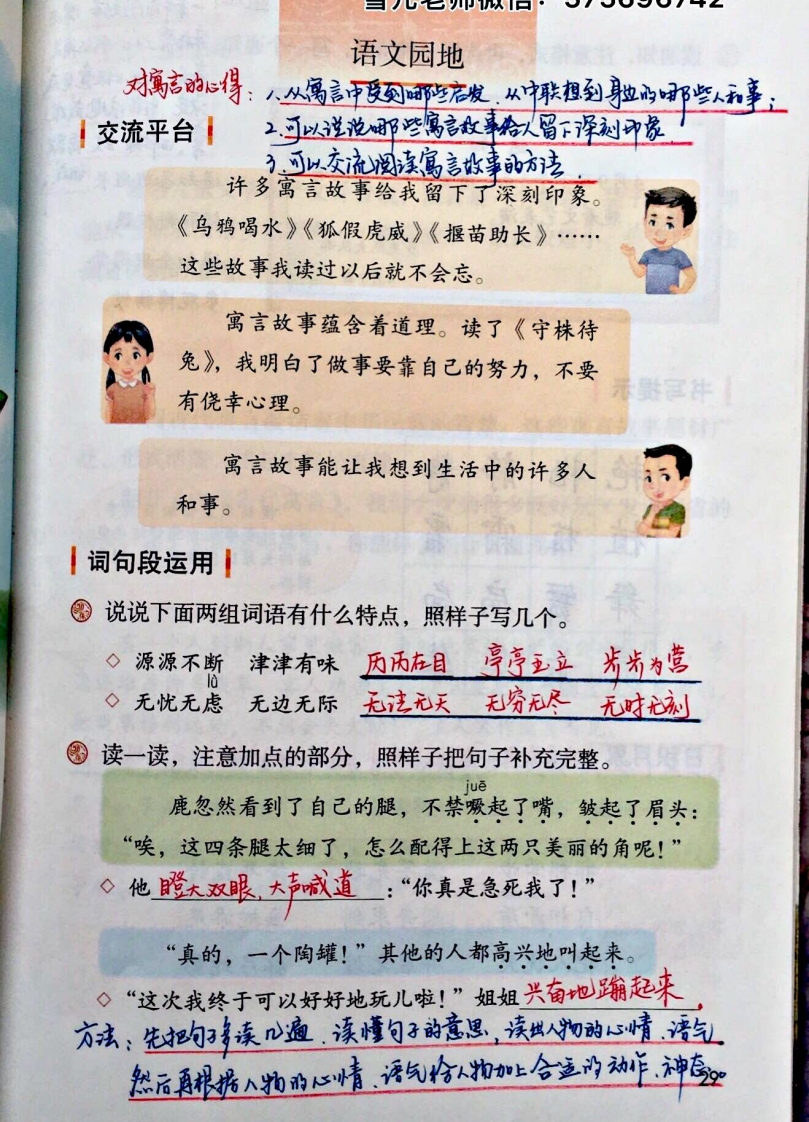 雪儿老师微信：573698742
语文园地
对寓言的心得：1.从寓言中受到哪些启发，从中联想到身边的哪些人和事；
交流平台
2.可以说说哪些寓言故事给人留下深刻印象
3.可以交流阅读寓言故事的方法
许多寓言故事给我留下了深刻印象。
《乌鸦喝水》《狐假虎威》《揠苗助长》……
这些故事我读过以后就不会忘。
寓言故事蕴含着道理。读了《守株待
兔》，我明白了做事要靠自己的努力，不要
有侥幸心理。
寓言故事能让我想到生活中的许多人
和事。
词句段运用
说说下面两组词语有什么特点，照样子写几个。
◇ 源源不断 津津有味 历历在目 亭亭玉立 步步为营
lǜ
◇ 无忧无虑 无边无际 无法无天 无穷无尽 无时无刻
读一读，注意加点的部分，照样子把句子补充完整。
juē
鹿忽然看到了自己的腿，不禁噘起了嘴，皱起了眉头：
“唉，这四条腿太细了，怎么配得上这两只美丽的角呢！”
◇ 他瞪大双眼，大声喊道：“你真是急死我了！”
“真的，一个陶罐！”其他的人都高兴地叫起来。
◇ “这次我终于可以好好地玩儿啦！”姐姐兴奋地蹦起来。
方法：先把句子多读几遍、读懂句子的意思，读出人物的心情、语气
然后再根据人物的心情、语气给人物加上合适的动作、神态。
29